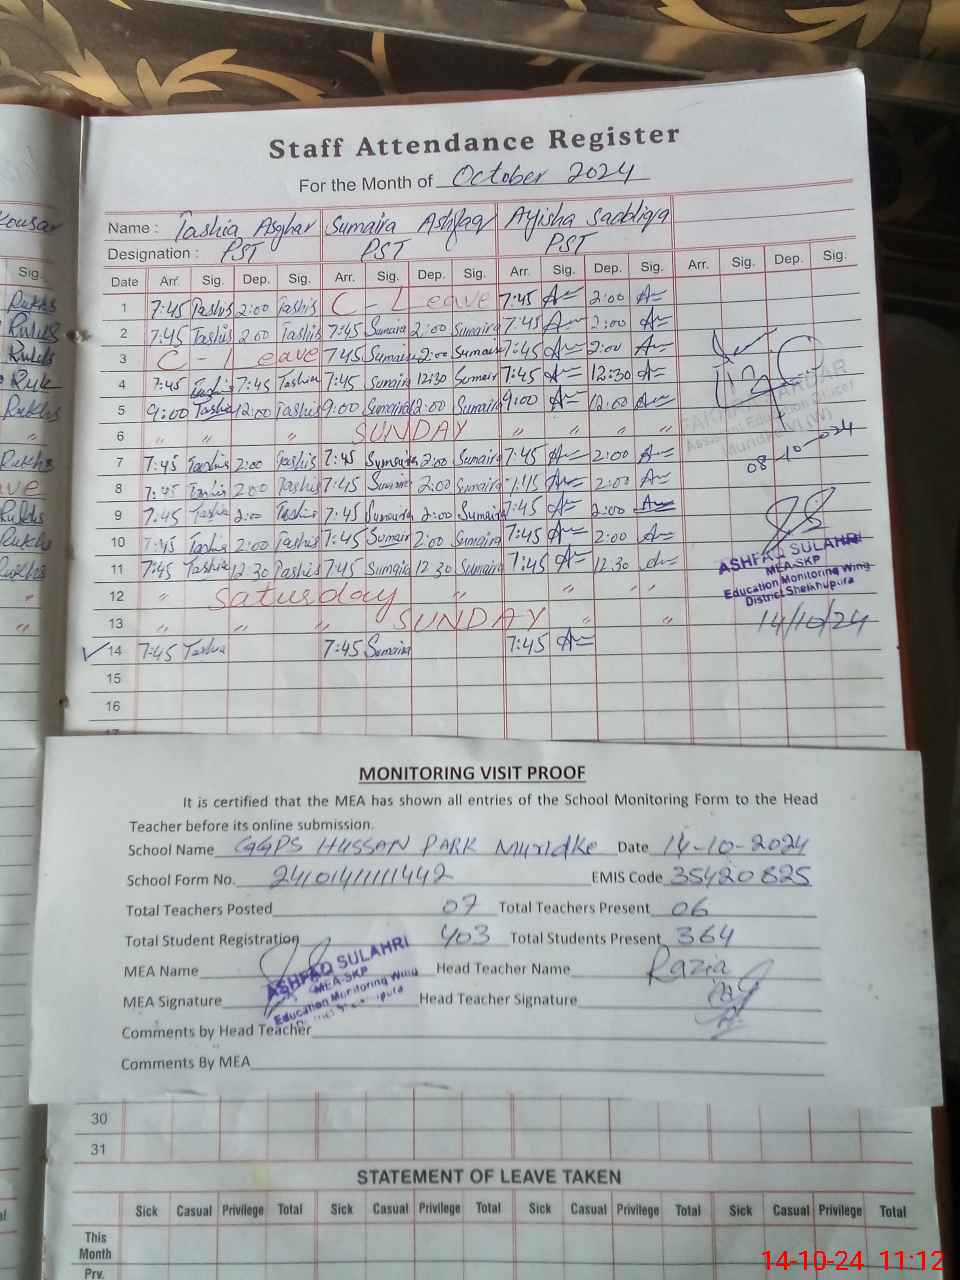 Staff Attendance Register
For the Month of October 2024
Name : Tashia Asghar Sumaira Ashfaq Ayisha Saabliqa
Designation : PST PST PST
Date Arr. Sig. Dep. Sig. Arr. Sig. Dep. Sig. Arr. Sig. Dep. Sig. Arr. Sig. Dep. Sig.
1 7:45 Tashis 2:00 Tashis C - Leave 7:45 2:00
2 7:45 Tashis 2:00 Tashis 7:45 Sumaira 2:00 Sumaira 7:45 2:00
3 C - leave 7:45 Sumaira 2:00 Sumaira 7:45 2:00
4 7:45 Tashia 7:45 Tashia 7:45 Sumaira 12:30 Sumair 7:45 12:30
5 9:00 Tashia 12:00 Tashis 9:00 Sumaira 12:00 Sumair 9:00 12:00
6 " " " SUNDAY " " " "
7 7:45 Tashis 2:00 Tashis 7:45 Sumaira 2:00 Sumaira 7:45 2:00
08-10-024
8 7:45 Tashis 2:00 Tashis 7:45 Sumair 2:00 Sumaira 2:00
9 7:45 Tashia 2:00 Tashis 7:45 Sumaira 2:00 Sumair 7:45 2:00
10 7:45 Tashis 2:00 Tashis 7:45 Sumair 2:00 Sumaira 7:45 2:00
11 7:45 Tashia 12:30 Tashis 7:45 Sumaira 12:30 Sumaira 7:45 12:30
ASHFAQ SULAHRI
MEA-SKP
Education Monitoring Wing
District Sheikhupura
12 " Saturday " " " "
13 " " " SUNDAY " "
14/10/24
14 7:45 Tashia 7:45 Sumaira 7:45
15
16
MONITORING VISIT PROOF
It is certified that the MEA has shown all entries of the School Monitoring Form to the Head
Teacher before its online submission.
School Name GGPS HUSSAN PARK Muridke Date 14-10-2024
School Form No. 2410141111442 EMIS Code 35420825
Total Teachers Posted 07 Total Teachers Present 06
Total Student Registration 403 Total Students Present 364
MEA Name Head Teacher Name Razia
ASHFAQ SULAHRI
MEA-SKP
Education Monitoring Wing
MEA Signature Head Teacher Signature
Comments by Head Teacher
Comments By MEA
30
31
STATEMENT OF LEAVE TAKEN
Sick Casual Privilege Total Sick Casual Privilege Total Sick Casual Privilege Total Sick Casual Privilege Total
This
Month
Prv.
14-10-24 11:12